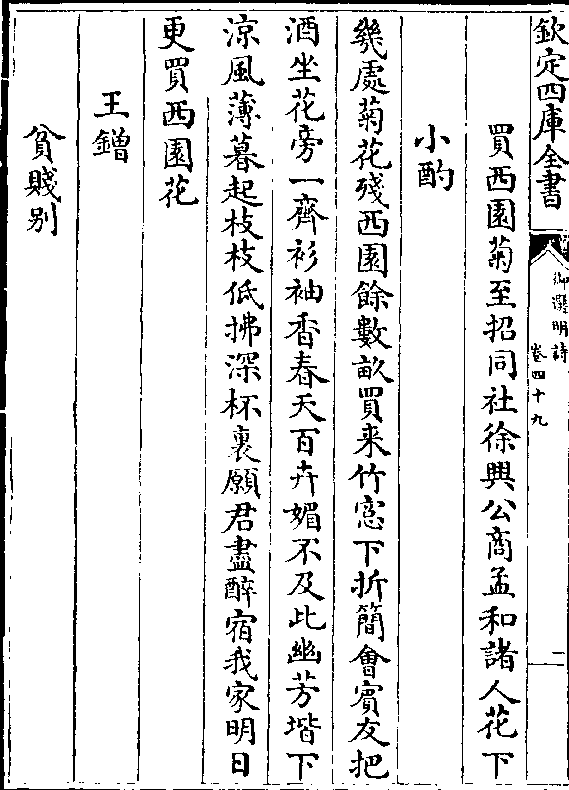 欽定四庫全書
御選明詩
卷四十九
二
買西園菊至招同社徐興公商孟和諸人花下
小酌
幾處菊花殘西園餘數畝買來竹窓下折簡會賓友把
酒坐花旁一齊衫袖香春天百卉媚不及此幽芳堦下
涼風薄暮起枝枝低拂深杯裏願君盡醉宿我家明日
更買西園花
王鏳
貧賤别